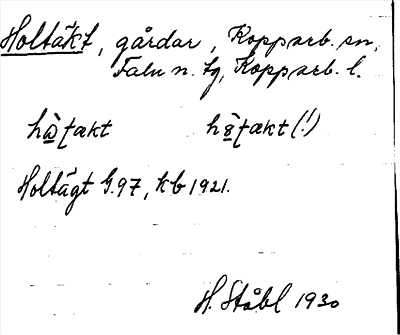 Holtäkt, gårdar, Kopparb. sn,
Falu n. tg, Kopparb. l.
Holtägt G.97, kb 1921.
H. Ståbl 1930